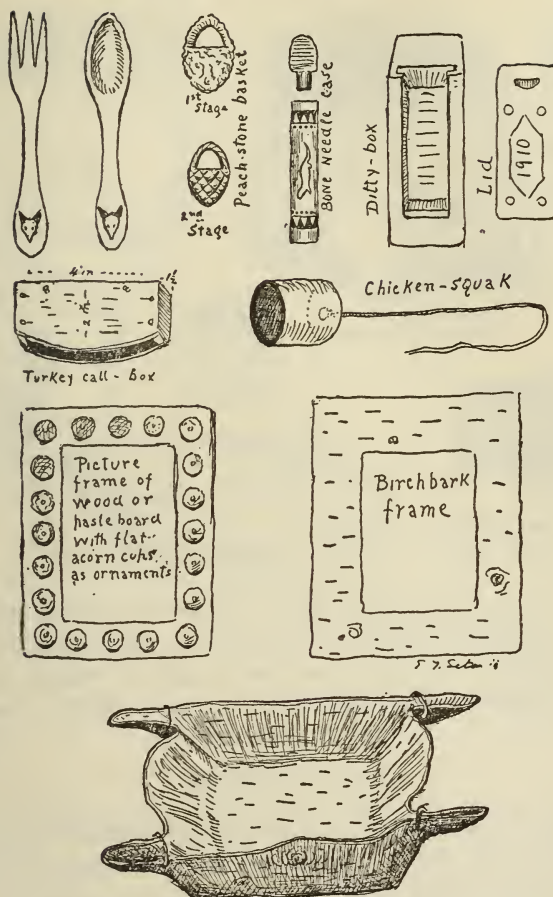 1st
Stage
2nd
Stage
Peach-stone basket
Bone Needle Case
Ditty-box
Lid
1910
4 in
Turkey call - Box
Chicken-Squak
Picture
frame of
wood or
pasteboard
with flat
acorn cups
as ornaments
Birchbark
frame